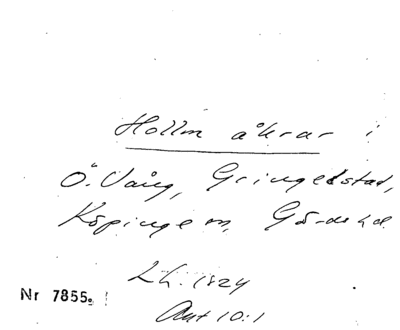 Hollm åkrar i
Ö. Vång, Gringelstad,
Köpinge sn, Gärds hd.
Lh. 1824
Akt 10:1
Nr 7855.